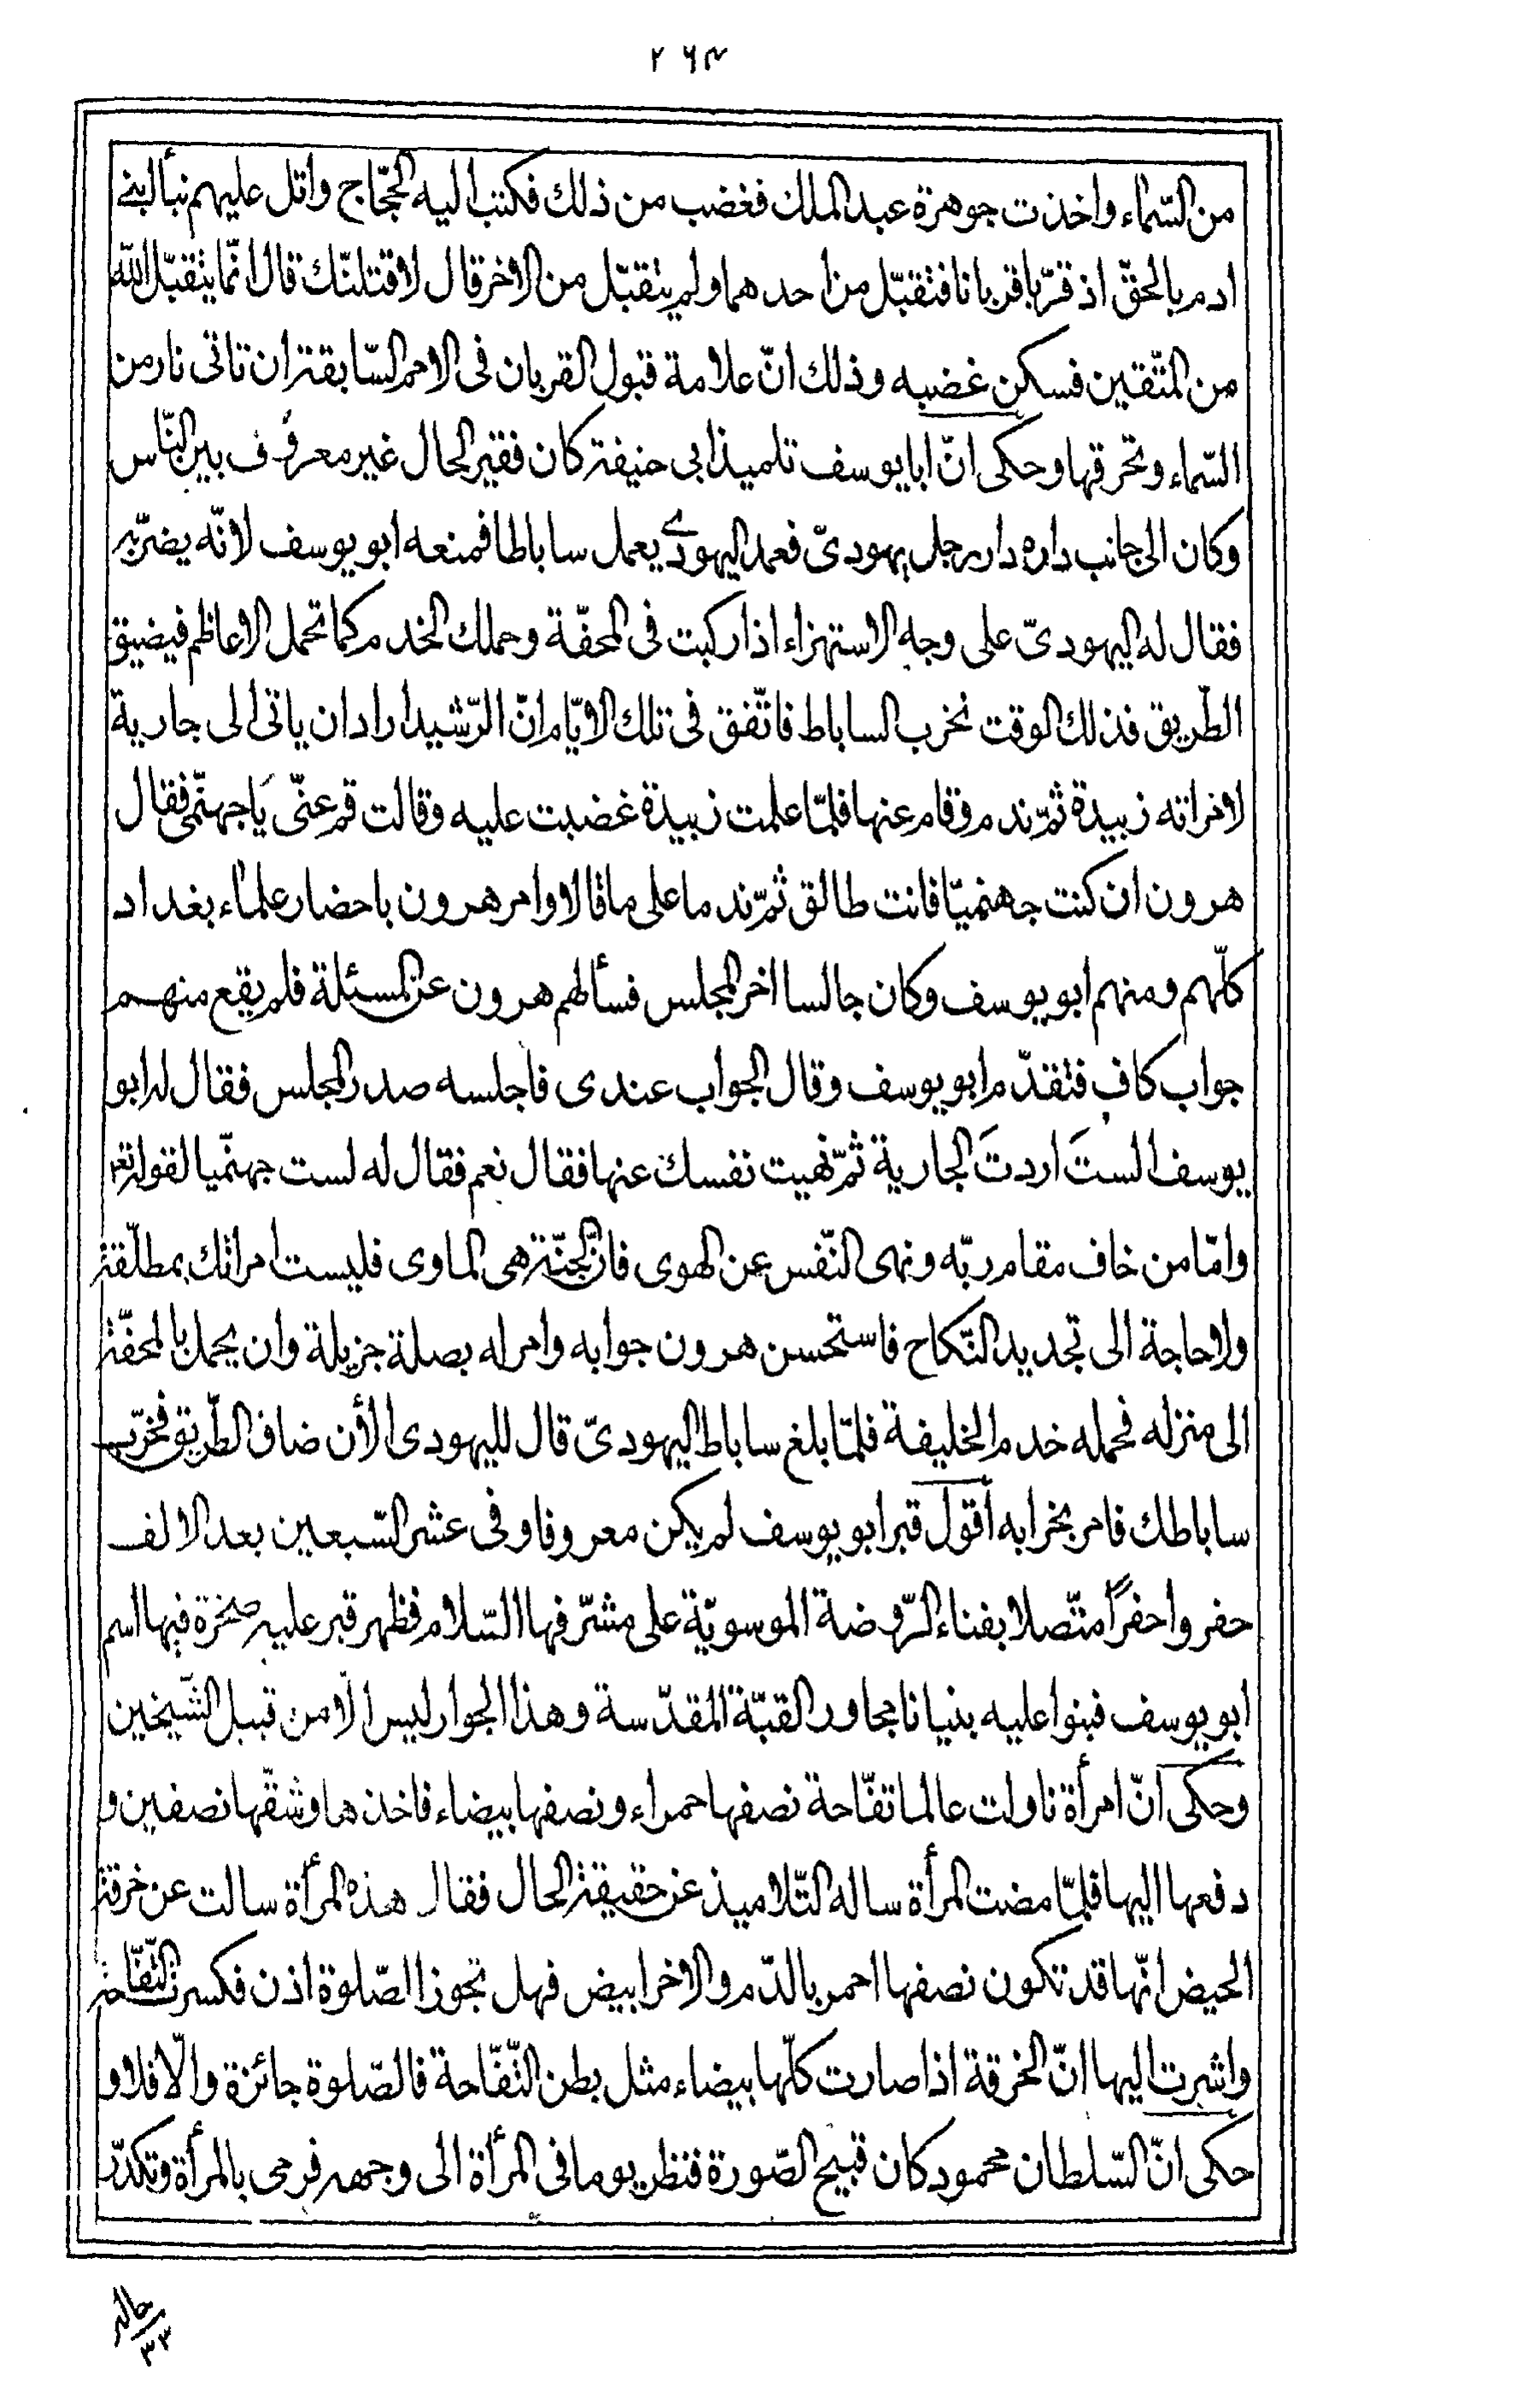 ٢٦٣
من السّماء واخذت جوهرة عبد الملك فغضب من ذلك فكتب اليه الحجّاج واتل عليهم نبأ ابنى
ادم بالحقّ اذ قرّبا قربانا فتقبّل من احدهما ولم يتقبّل من الاخر قال لاقتلنّك قال انّما يتقبّل الله
من المتّقين فسكن غضبه وذلك انّ علامة قبول القربان فى الامم السّابقة ان تاتى نار من
السّماء وتحرقها وحكى انّ ابا يوسف تلميذ ابى حنيفة كان فقير الحال غير معروف بين النّاس
وكان الى جانب داره دار رجل يهودىّ فعمد اليهودى يعمل ساباطا فمنعه ابو يوسف لانّه يضرّ به
فقال له اليهودىّ على وجه الاستهزاء اذا ركبت فى المحفّة وحملك الخدم كما تحمل الاعاظم فيضيق
الطّريق فذلك الوقت نخرب الساباط فاتّفق فى تلك الايّام انّ الرّشيد اراد ان ياتى الى جارية
لامراته زبيدة ثمّ ندم وقام عنها فلمّا علمت زبيدة غضبت عليه وقالت قم عنّى يَا جهنّمى فقال
هرون ان كنت جهنميّا فانت طالق ثمّ ندما على ما قالا وامر هرون باحضار علماء بغداد
كلّهم ومنهم ابو يوسف وكان جالسا اخر المجلس فسألهم هرون عن المسئلة فلم يقع منهم
جواب كاف فتقدّم ابو يوسف وقال الجواب عندى فاجلسه صدر المجلس فقال له ابو
يوسف الستَ اردتَ الجارية ثمّ نهيت نفسك عنها فقال نعم فقال له لست جهنّميا لقوله تعالى
وامّا من خاف مقام ربّه ونهى النّفس عن الهوى فانّ الجنّة هى الماوى فليست امراتك بمطلّقة
ولا حاجة الى تجديد النّكاح فاستحسن هرون جوابه وامر له بصلة جزيلة وان يحمل بالمحفّة
الى منزله فحمله خدم الخليفة فلمّا بلغ ساباط اليهودىّ قال لليهودى الأن ضاق الطّريق فخرّب
ساباطك فامر بخرابه أقول قبر ابو يوسف لم يكن معروفا وفى عشر السّبعين بعد الالف
حفروا حفرًا متّصلا بفناء الرّوضة الموسويّة على مشرّفها السّلام فظهر قبر عليه صخرة فيها اسم
ابو يوسف فبنوا عليه بنيانا مجاور القبّة المقدّسة وهذا الجوار ليس الّا من قبل الشّيخين
وحكى انّ امرأة ناولت عالما تفّاحة نصفها حمراء ونصفها بيضاء فاخذها وشقّها نصفين و
دفعها اليها فلمّا مضت المرأة ساله التّلاميذ عن حقيقة الحال فقال هذه المرأة سالت عن خرقة
الحيض انّها قد تكون نصفها احمر بالدّم والاخر ابيض فهل تجوز الصّلوة اذن فكسرت التّفّاحة
واشرت اليها انّ الخرقة اذا صارت كلّها بيضاء مثل بطن التّفّاحة فالصّلوة جائزة والّا فلا و
حكى انّ السّلطان محمود كان قبيح الصّورة فنظر يوما فى المرأة الى وجهه فرمى بالمرأة وتكدّر
حاله
٣٣